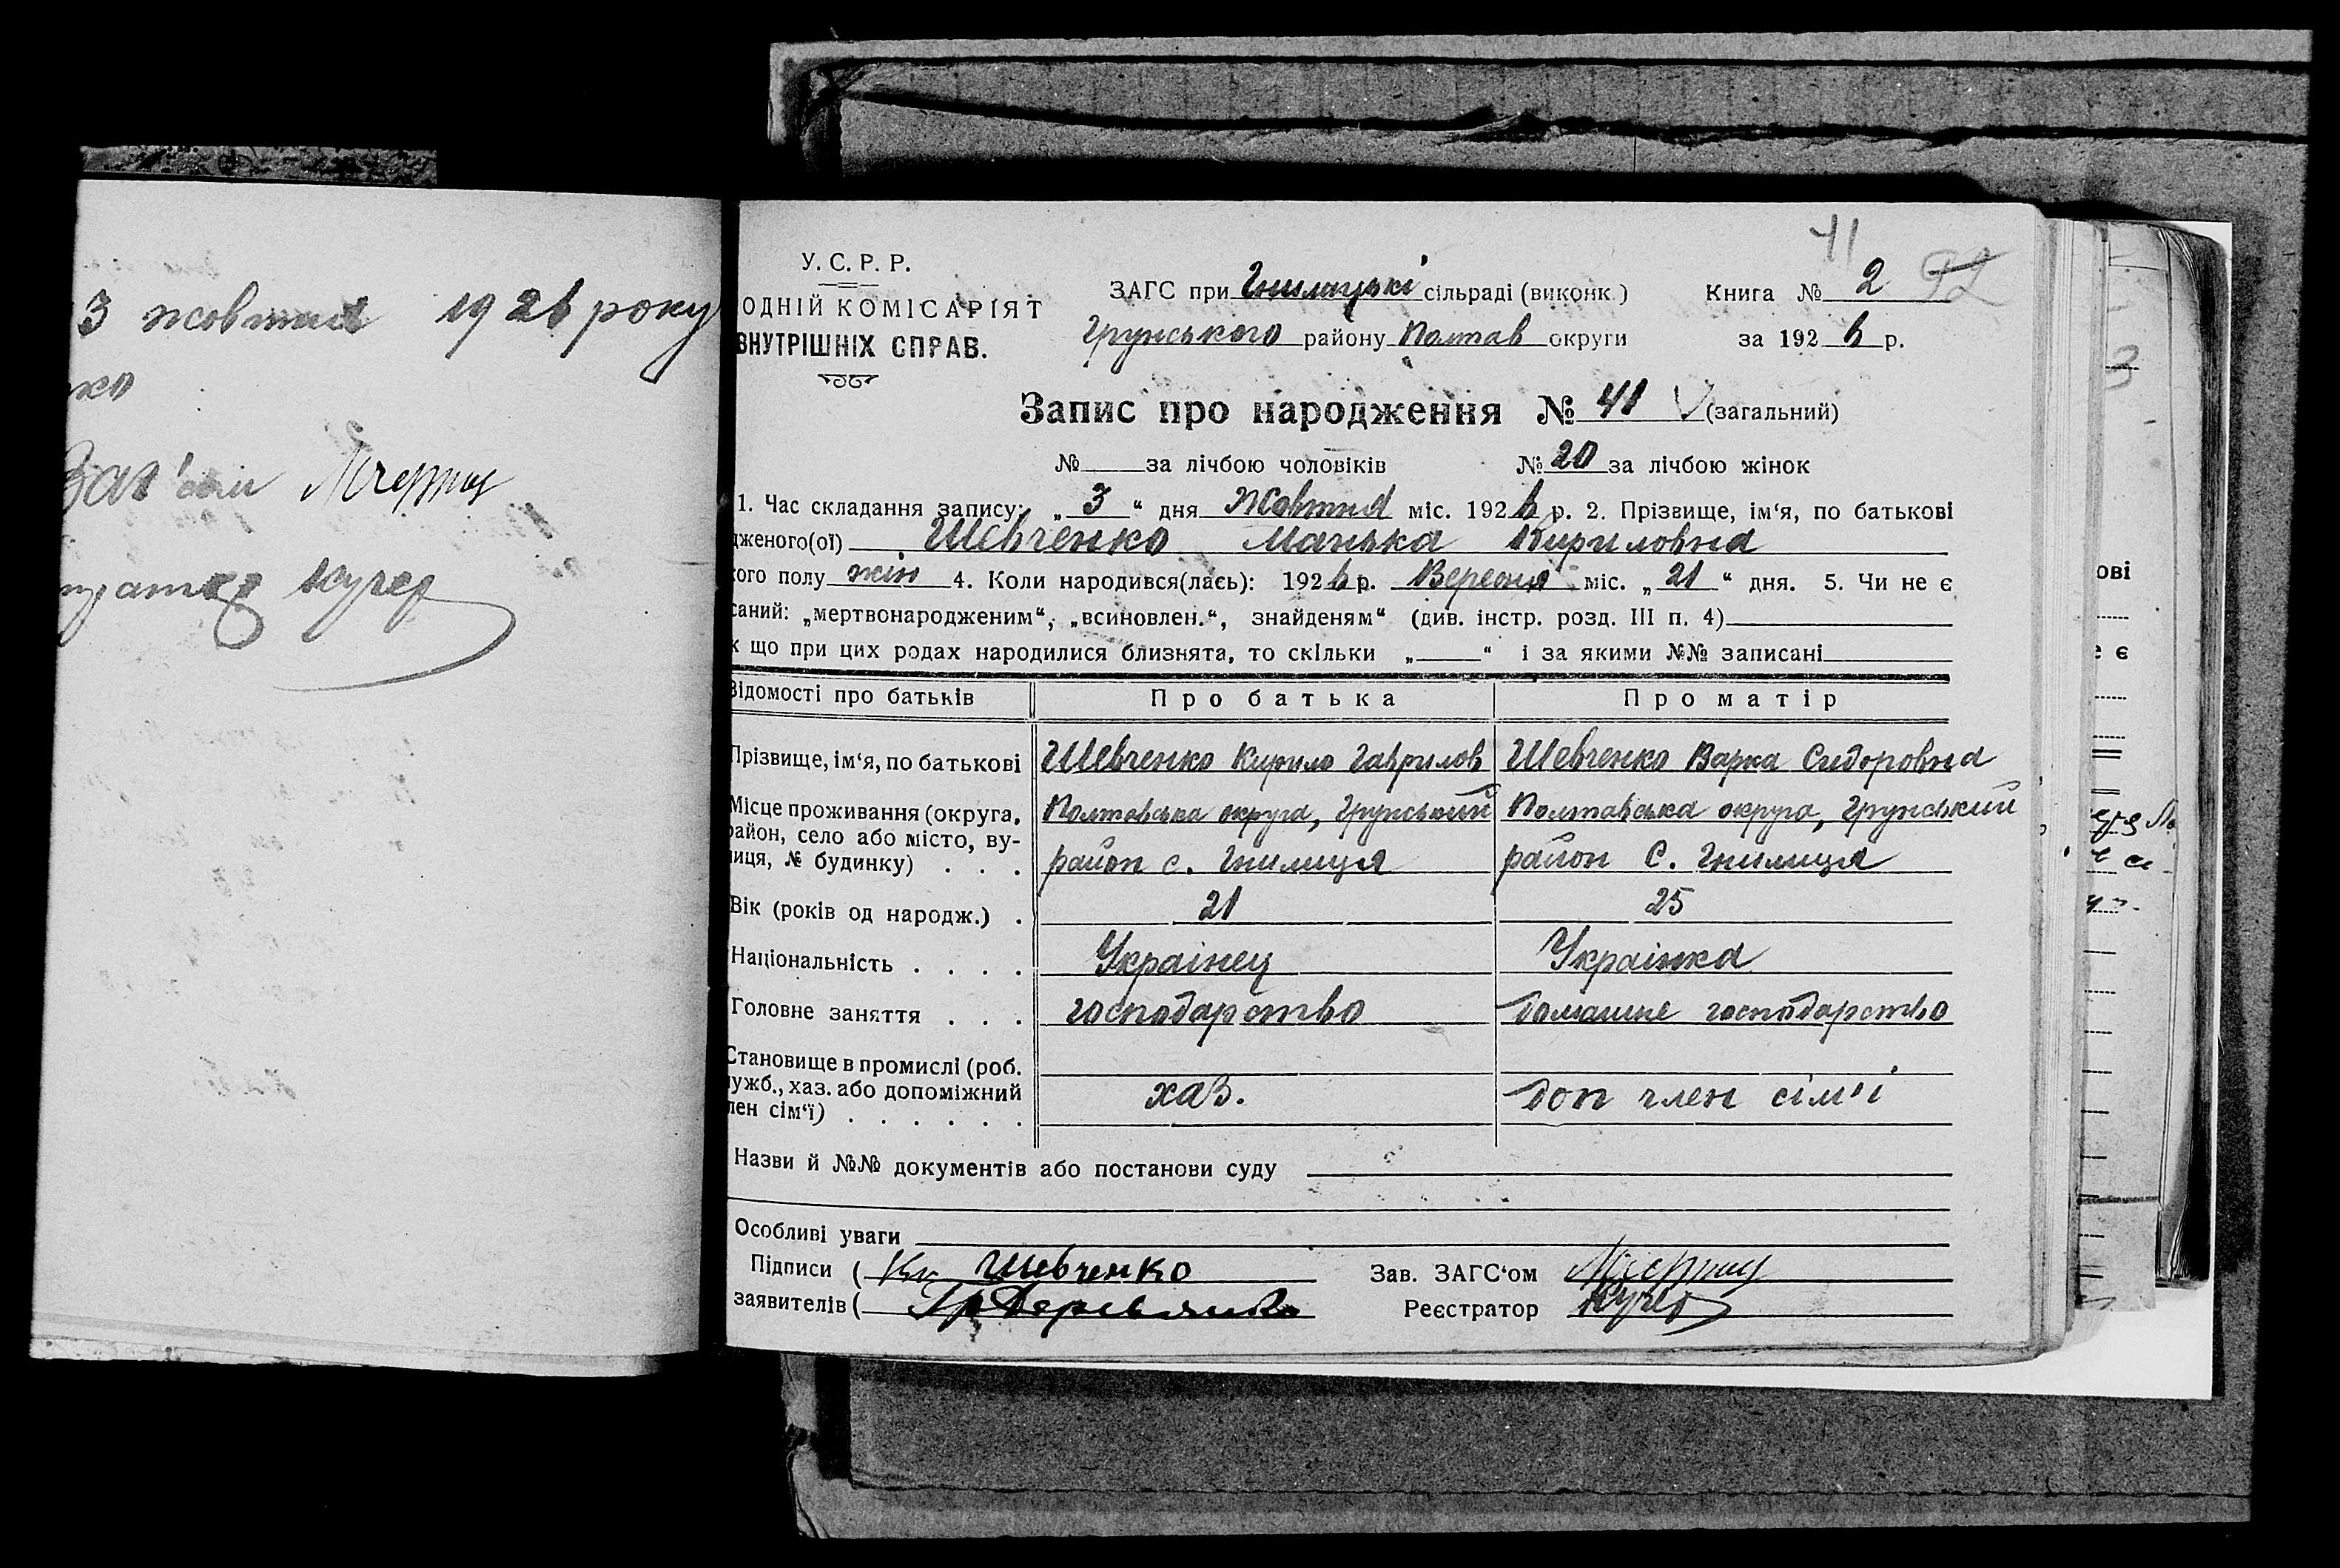 3 жовтня 1926 року
ко
Заг'сом
Кучер
41
У. С. Р. Р.
ОДНІЙ КОМІСАРІЯТ
ВНУТРІШНІХ СПРАВ.
ЗАГС при Гнилицькі сільраді (виконк.)
Книга № 2 92
Грунського району Полтав округи
за 1926 р.
Запис про народження № 41 (загальний)
№ за лічбою чоловіків № 20 за лічбою жінок
1. Час складання запису: „3“ дня Жовтня міс. 1926 р. 2. Прізвище, ім‘я, по батькові
дженого(ої) Шевченко Манька Кириловна
кого полу жін 4. Коли народився(лась): 1926 р. Вересня міс. „21“ дня. 5. Чи не є
саний: „мертвонародженим“, „всиновлен.“, знайденям“ (див. інстр. розд. III п. 4)
к що при цих родах народилися близнята, то скільки „ “ і за якими №№ записані
Відомості про батьків
Про батька
Про матір
Прізвище, ім‘я, по батькові
Шевченко Кирило Гаврилов
Шевченко Варка Сидоровна
Місце проживання (округа,
район, село або місто, ву-
лиця, № будинку) . . .
Полтавська округа, Грунський
район с. Гнилиця
Полтавська округа, Грунський
район С. Гнилиця
Вік (років од народж.) .
21
25
Національність . . . .
Украінец
Украінка
Головне заняття . . .
господарство
домашне господарство
Становище в промислі (роб.
лужб., хаз. або допоміжний
лен сім‘ї) . . . . . .
хаз.
доп член сімї
Назви й №№ документів або постанови суду
Особливі уваги
Підписи ( Ки Шевченко
Зав. ЗАГС‘ом
заявителів ( Гр Деревянко
Реєстратор Кучер
ові
є